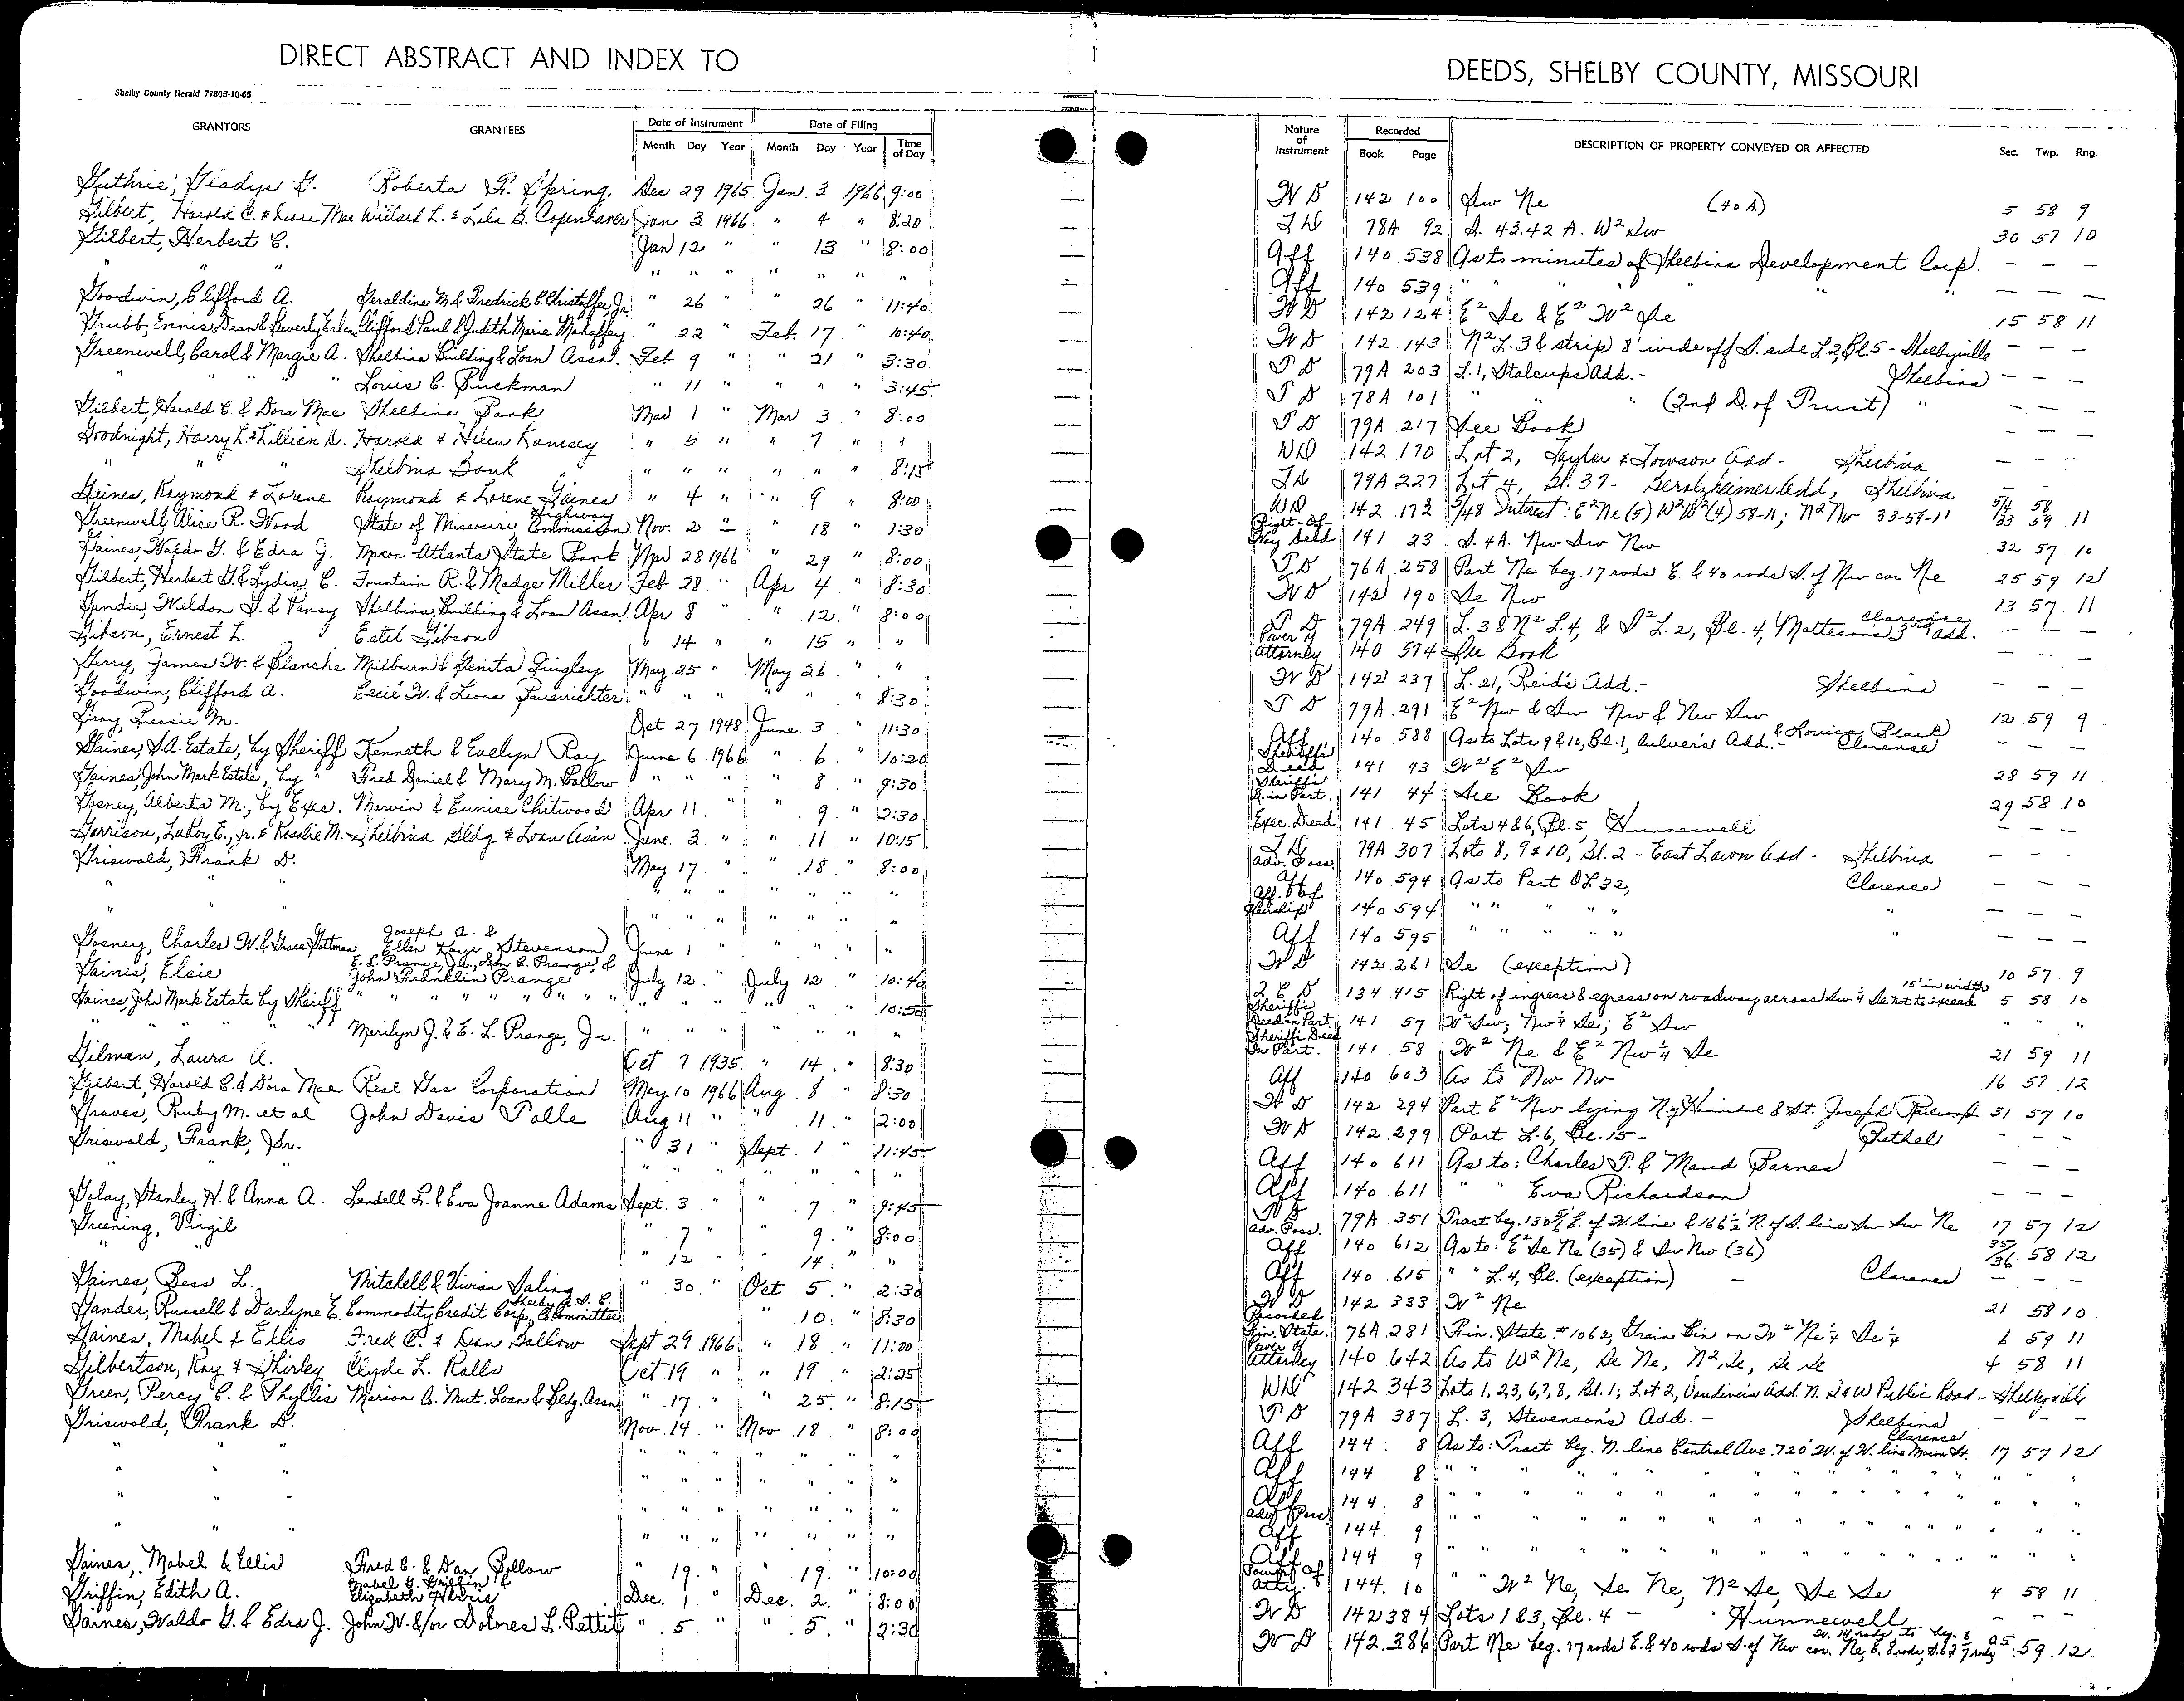 DIRECT ABSTRACT AND INDEX TO
DEEDS, SHELBY COUNTY, MISSOURI
Shelby County Herald 7780B-10-65
GRANTORS GRANTEES Date of Instrument Date of Filing
Month Day Year Month Day Year Time of Day
Nature of Instrument Recorded Book Page DESCRIPTION OF PROPERTY CONVEYED OR AFFECTED Sec. Twp. Rng.
Guthrie, Gladys G. Roberta F. Spring Dec 29 1965 Jan. 3 1966 9:00 W D 142 100 Sw Ne (40 A) 5 58 9
Gilbert, Harold C. & Mae Willard L. & Lela B. Copenhaver Jan 3 1966 " 4 " 8:20 T D 78A 92 S. 43.42 A. W² Sw 30 57 10
Gilbert, Herbert C. Jan 12 " " 13 " 8:00 Aff 140 538 As to minutes of Shelbina Development Corp. — — —
" " " " " " " " " Aff 140 539 " " " " — — —
Goodwin, Clifford A. Geraldine M & Fredrick C. Christoffer, Jr. " 26 " " 26 " 11:40 W D 142 124 E² Se & E² W² Se 15 58 11
Grubb, Ennis Dean & Beverly Erlene Clifford Paul & Judith Marie Mahaffey " 22 " Feb. 17 " 10:40 W D 142 143 N² L.3 & strip 8' wide off S. side L.2, Bl.5 - Shelbyville — — —
Greenwell, Carol & Margie A. Shelbina Building & Loan Assn. Feb 9 " " 21 " 3:30 T D 79A 203 L.1, Stalcups Add. - Shelbina — — —
" " " " Louis C. Buckman " 11 " " " " 3:45 T D 78A 101 " " " (2nd D. of Trust) " — — —
Gilbert, Harold C. & Dora Mae Shelbina Bank Mar 1 " Mar 3 " 8:00 T D 79A 217 See Book — — —
Goodnight, Harry L. & Lillian D. Harold & Helen Ramsey " 5 " " 7 " " WD 142 170 Lot 2, Taylor & Towson Add - Shelbina — — —
" " " Shelbina Bank " " " " " " 8:15 T D 79A 227 Lot 4, Bl. 37 - Berolzheimer Add, Shelbina — —
Gaines, Raymond & Lorene Raymond & Lorene Gaines " 4 " " 9 " 8:00 WD 142 172 5/48 Interest: E² Ne (5) W² W² (4) 58-11; N² Nw 33-59-11 5/4 58 /33 59 11
Greenwell, Alice R. Wood State of Missouri, Highway Commission Nov. 2 – " 18 1:30 Right-Of-Way Deed 141 23 S. 4 A. Nw Sw Nw 32 57 10
Gaines, Waldo G. & Edra J. Macon-Atlanta State Bank Mar 28 1966 " 29 " 8:00 T D 76A 258 Part Ne beg. 17 rods E. & 40 rods S. of Nw cor Ne 25 59 12
Gilbert, Herbert G. & Lydia C. Fountain R. & Madge Miller Feb 28 " Apr 4 " 8:30 W D 142 190 Se Nw 13 57 11
Gander, Weldon G. & Pansy Shelbina Building & Loan Assn Apr 8 " " 12 " 8:00 T D 79A 249 L. 3 & N² L.4, & S² L.2, Bl. 4, Matteson's 3rd Add. Clarence — — —
Gibson, Ernest L. Estel Gibson " 14 " " 15 " " Power of Attorney 140 574 See Book — — —
Gerry, James W. & Blanche Milburn & Genita Quigley May 25 " May 26 " " W D 142 237 L. 21, Reid's Add. - Shelbina — — —
Goodwin, Clifford A. Cecil W. & Leona Bauerrichter " " " " " " 8:30 T D 79A 291 E² Nw & Sw Nw & Nw Sw 12 59 9
Gray, Bessie M. Oct 27 1948 June 3 " 11:30 Aff 140 588 As to Lots 9 & 10, Bl. 1, Culver's Add. - & Louisa Black Clarence — — —
Gaines, S.A. Estate, by Sheriff Kenneth & Evelyn Ray June 6 1966 " 6 " 10:20 Sheriff's Deed 141 43 W² E² Sw 28 59 11
Gaines, John Mark Estate, by " Fred Daniel & Mary M. Bollow " " " " 8 " 9:30 Sheriff's D. in Part. 141 44 See Book 29 58 10
Gosney, Alberta M., by Exec. Marvin & Eunice Chitwood Apr 11 " " 9 " 2:30 Exec. Deed 141 45 Lots 4 & 6, Bl. 5, Hunnewell — — —
Garrison, LaRoy E., Jr. & Rosalie M. Shelbina Bldg & Loan Ass'n June 3 " " 11 " 10:15 T D 79A 307 Lots 8, 9 & 10, Bl. 2 - East Lawn Add - Shelbina — — —
Griswold, Frank D. May 17 " " 18 " 8:00 Adv. Poss. Aff 140 594 As to Part OL 32, Clarence — — —
" " " " " " " " " Aff. of Heirship 140 594 " " " " " " — — —
" " " " " " " Aff 140 595 " " " " " " — — —
Gosney, Charles W. & Grace Pittman Joseph A. & Ellen Kaye Stevenson June 1 " " " " " W D 142 261 Se (exception) 10 57 9
Gaines, Elsie E. L. Prange, Jr., Don C. Prange, & John Franklin Prange July 12 " July 12 " 10:40 Q C D 134 415 Right of ingress & egress on roadway across Sw ¼ Se not to exceed 15' in width 5 58 10
Gaines, John Mark Estate by Sheriff " " " " " " " " " " " " " " 10:50 Sheriff's Deed in Part. 141 57 W² Sw; Nw¼ Se; E² Sw " " "
" " " " " Marilyn J. & E. L. Prange, Jr. " " " " " " " Sheriff's Deed In Part. 141 58 W² Ne & E² Nw¼ Se 21 59 11
Gilman, Laura A. Oct 7 1935 " 14 " 8:30 Aff 140 603 As to Nw Nw 16 57 12
Gilbert, Harold C. & Dora Mae Real Gas Corporation May 10 1966 Aug. 8 " 8:30 W D 142 294 Part E² Nw lying N. of Hannibal & St. Joseph Railroad 31 57 10
Graves, Ruby M. et al John Davis Tolle Aug 11 " " 11 " 2:00 W D 142 299 Part L.6, Bl. 15 - Bethel — — —
Griswold, Frank, Sr. " 31 " Sept. 1 " 11:45 Aff 140 611 As to: Charles P. & Maud Barnes — — —
" " " " " " " Aff 140 611 " " Eva Richardson — — —
Golay, Stanley H. & Anna A. Lendell L. & Eva Joanne Adams Sept. 3 " " 7 " 9:45 T D 79A 351 Tract beg. 130 5/6 E. of W. line & 166½' N. of S. line Sw Sw Ne 17 57 12
Greening, Virgil " 7 " " 9 " 8:00 Adv. Poss. Aff 140 612 As to: E² Se Ne (35) & Sw Nw (36) 35/36 58 12
" " " 12 " " 14 " " Aff 140 615 " " L.4, Bl. (exception) - Clarence — — —
Gaines, Bess L. Mitchell & Vivian Saling " 30 " Oct 5 " 2:30 W D 142 333 W² Ne 21 58 10
Gander, Russell & Darlyne E. Commodity Credit Corp., Shelby A. S. C. Co. Committee " 10 " 8:30 Recorded Fin. State. 76A 281 Fin. State. #1062, Grain Bin on W² Ne¼ Se¼ 6 59 11
Gaines, Mabel & Ellis Fred C. & Dan Bollow Sept 29 1966 " 18 " 11:00 Power of Attorney 140 642 As to W² Ne, Se Ne, N² Se, Se Se 4 58 11
Gilbertson, Ray & Shirley Clyde L. Ralls Oct 19 " " 19 " 2:25 WD 142 343 Lots 1, 2, 3, 6, 7, 8, Bl. 1; Lot 2, Vandiver's Add. N. S & W Public Road - Shelbyville
Green, Percy C. & Phyllis Marion Co. Mut. Loan & Bldg. Assn " 17 " " 25 " 8:15 T D 79A 387 L. 3, Stevenson's Add. - Shelbina — — —
Griswold, Frank D. Nov 14 " Nov 18 " 8:00 Aff 144 8 As to: Tract beg. N. line Central Ave. 720' W. of W. line Macon St. Clarence 17 57 12
" " " " " " " " " " Aff 144 8 " " " " " " " " " " " " "
" " " " " " " " " " Aff 144 8 " " " " " " " " " " " " "
" " " " " " " " " " Adv. Poss. Aff 144 9 " " " " " " " " " " " " "
" " " " " " " " " " Aff 144 9 " " " " " " " " " " " " "
Gaines, Mabel & Ellis Fred C. & Dan Bollow " 19 " " 19 " 10:00 Power of Atty. 144 10 " " W² Ne, Se Ne, N² Se, Se Se 4 58 11
Griffin, Edith A. Mabel G. Griffin & Elizabeth Harris Dec. 1 " Dec. 2 " 8:00 W D 142 384 Lots 1 & 3, Bl. 4 - Hunnewell — — —
Gaines, Waldo G. & Edra J. John W. &/or Dolores L. Pettit " 5 " " 5 " 2:30 W D 142 386 Part Ne beg. 17 rods E. & 40 rods S. of Nw cor. Ne, E. 8 rods, 25 59 12